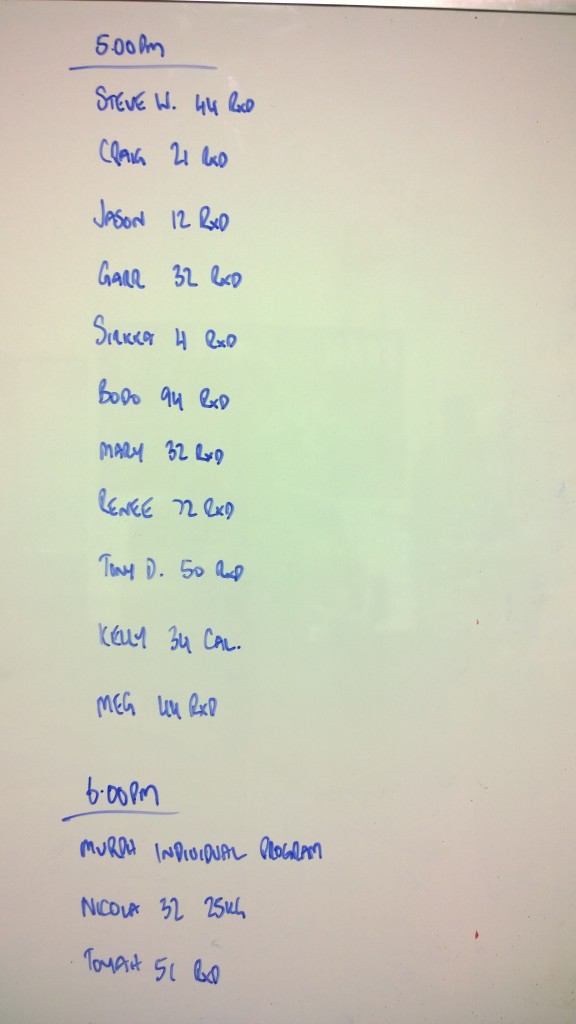 5.00PM
STEVE W. 44 RXD
CRAIG 21 RXD
JASON 12 RXD
GARR 32 RXD
4 RXD
BODO 94 RXD
MARY 32 RXD
RENEE 72 RXD
TONY D. 50 RXD
KELLY 34 CAL.
MEG 44 RXD
6.00PM
MURPH INDIVIDUAL PROGRAM
NICOLA 32 25KG
51 RXD